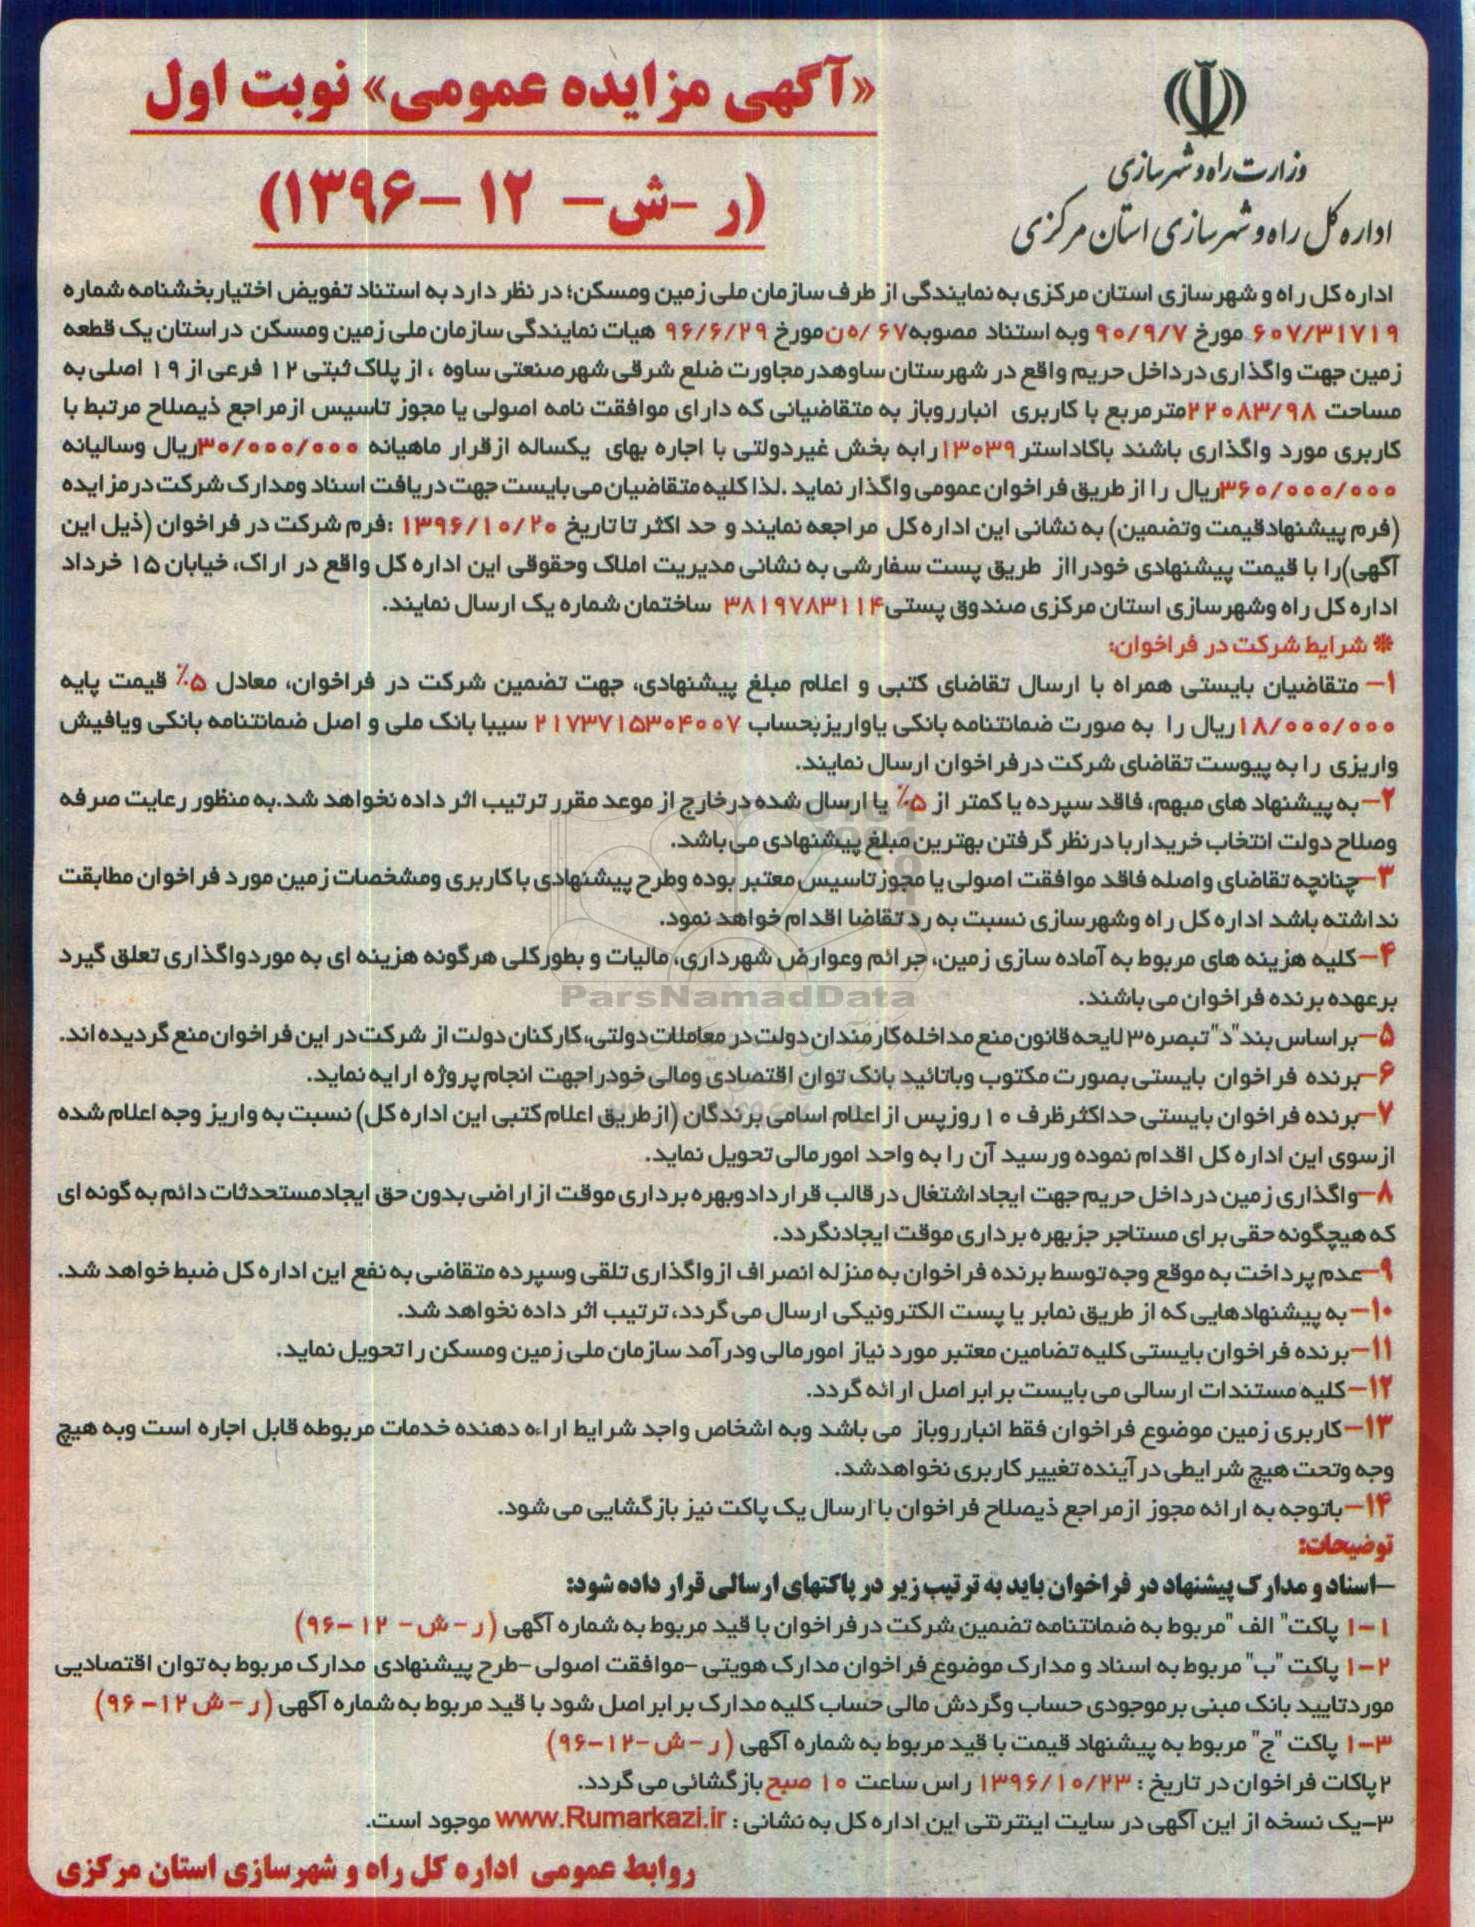 «آگهی مزایده عمومی» نوبت اول
(ر -ش- ۱۲ -۱۳۹۶)
وزارت راه و شهرسازی
اداره کل راه و شهرسازی استان مرکزی
اداره کل راه و شهرسازی استان مرکزی به نمایندگی از طرف سازمان ملی زمین ومسکن؛ در نظر دارد به استناد تفویض اختیاربخشنامه شماره
۶۰۷/۳۱۷۱۹ مورخ ۹۰/۹/۷ وبه استناد مصوبه ۶۷ /ه ن مورخ ۹۶/۶/۲۹ هیات نمایندگی سازمان ملی زمین ومسکن دراستان یک قطعه
زمین جهت واگذاری درداخل حریم واقع در شهرستان ساوهدرمجاورت ضلع شرقی شهرصنعتی ساوه ، از پلاک ثبتی ۱۲ فرعی از ۱۹ اصلی به
مساحت ۲۲۰۸۳/۹۸مترمربع با کاربری انبارروباز به متقاضیانی که دارای موافقت نامه اصولی یا مجوز تاسیس ازمراجع ذیصلاح مرتبط با
کاربری مورد واگذاری باشند باکاداستر۱۳۰۳۹رابه بخش غیردولتی با اجاره بهای یکساله ازقرار ماهیانه ۳۰/۰۰۰/۰۰۰ریال وسالیانه
۳۶۰/۰۰۰/۰۰۰ریال را از طریق فراخوان عمومی واگذار نماید .لذا کلیه متقاضیان می بایست جهت دریافت اسناد ومدارک شرکت درمزایده
(فرم پیشنهادقیمت وتضمین) به نشانی این اداره کل مراجعه نمایند و حد اکثر تا تاریخ ۱۳۹۶/۱۰/۲۰ :فرم شرکت در فراخوان (ذیل این
آگهی)را با قیمت پیشنهادی خودرااز طریق پست سفارشی به نشانی مدیریت املاک وحقوقی این اداره کل واقع در اراک، خیابان ۱۵ خرداد
اداره کل راه وشهرسازی استان مرکزی صندوق پستی۳۸۱۹۷۸۳۱۱۴ ساختمان شماره یک ارسال نمایند.
* شرایط شرکت در فراخوان:
۱- متقاضیان بایستی همراه با ارسال تقاضای کتبی و اعلام مبلغ پیشنهادی، جهت تضمین شرکت در فراخوان، معادل ۵٪ قیمت پایه
۱۸/۰۰۰/۰۰۰ریال را به صورت ضمانتنامه بانکی یاواریزبحساب ۲۱۷۳۷۱۵۳۰۴۰۰۷ سیبا بانک ملی و اصل ضمانتنامه بانکی ویافیش
واریزی را به پیوست تقاضای شرکت درفراخوان ارسال نمایند.
۲-به پیشنهاد های مبهم، فاقد سپرده یا کمتر از ۵٪ یا ارسال شده درخارج از موعد مقرر ترتیب اثر داده نخواهد شد.به منظور رعایت صرفه
وصلاح دولت انتخاب خریدار با درنظر گرفتن بهترین مبلغ پیشنهادی می باشد.
۳-چنانچه تقاضای واصله فاقد موافقت اصولی یا مجوز تاسیس معتبر بوده وطرح پیشنهادی با کاربری ومشخصات زمین مورد فراخوان مطابقت
نداشته باشد اداره کل راه وشهرسازی نسبت به رد تقاضا اقدام خواهد نمود.
۴-کلیه هزینه های مربوط به آماده سازی زمین، جرائم وعوارض شهرداری، مالیات و بطورکلی هرگونه هزینه ای به موردواگذاری تعلق گیرد
برعهده برنده فراخوان می باشند.
۵-براساس بند"د" تبصره۳ لایحه قانون منع مداخله کارمندان دولت در معاملات دولتی،کارکنان دولت از شرکت در این فراخوان منع گردیده اند.
۶-برنده فراخوان بایستی بصورت مکتوب وباتائید بانک توان اقتصادی ومالی خودراجهت انجام پروژه ارایه نماید.
۷-برنده فراخوان بایستی حداکثرظرف ۱۰ روزپس ازاعلام اسامی برندگان (ازطریق اعلام کتبی این اداره کل) نسبت به واریز وجه اعلام شده
ازسوی این اداره کل اقدام نموده ورسید آن را به واحد امورمالی تحویل نماید.
۸-واگذاری زمین درداخل حریم جهت ایجاداشتغال درقالب قراردادوبهره برداری موقت ازاراضی بدون حق ایجادمستحدثات دائم به گونه ای
که هیچگونه حقی برای مستاجر جزبهره برداری موقت ایجادنگردد.
۹-عدم پرداخت به موقع وجه توسط برنده فراخوان به منزله انصراف ازواگذاری تلقی وسپرده متقاضی به نفع این اداره کل ضبط خواهد شد.
۱۰- به پیشنهادهایی که از طریق نمابر یا پست الکترونیکی ارسال می گردد، ترتیب اثر داده نخواهد شد.
۱۱-برنده فراخوان بایستی کلیه تضامین معتبر مورد نیاز امورمالی ودرآمد سازمان ملی زمین ومسکن را تحویل نماید.
۱۲-کلیه مستندات ارسالی می بایست برابر اصل ارائه گردد.
۱۳-کاربری زمین موضوع فراخوان فقط انبارروباز می باشد وبه اشخاص واجد شرایط اراءه دهنده خدمات مربوطه قابل اجاره است وبه هیچ
وجه وتحت هیچ شرایطی درآینده تغییر کاربری نخواهدشد.
۱۴-باتوجه به ارائه مجوز ازمراجع ذیصلاح فراخوان با ارسال یک پاکت نیز بازگشایی می شود.
توضیحات:
-اسناد و مدارک پیشنهاد در فراخوان باید به ترتیب زیر در پاکتهای ارسالی قرار داده شود:
۱-۱ پاکت" الف "مربوط به ضمانتنامه تضمین شرکت درفراخوان با قید مربوط به شماره آگهی (ر-ش- ۱۲ -۹۶)
۱-۲ پاکت "ب" مربوط به اسناد و مدارک موضوع فراخوان مدارک هویتی -موافقت اصولی -طرح پیشنهادی مدارک مربوط به توان اقتصادیی
موردتایید بانک مبنی برموجودی حساب وگردش مالی حساب کلیه مدارک برابر اصل شود با قید مربوط به شماره آگهی (ر- ش ۱۲- ۹۶)
۱-۳ پاکت "ج" مربوط به پیشنهاد قیمت با قید مربوط به شماره آگهی (ر-ش-۱۲-۹۶)
۲پاکات فراخوان در تاریخ : ۱۳۹۶/۱۰/۲۳ راس ساعت ۱۰ صبح بازگشائی می گردد.
۳-یک نسخه از این آگهی در سایت اینترنتی این اداره کل به نشانی : www.Rumarkazi.ir موجود است.
روابط عمومی اداره کل راه و شهرسازی استان مرکزی
ParsNamadData